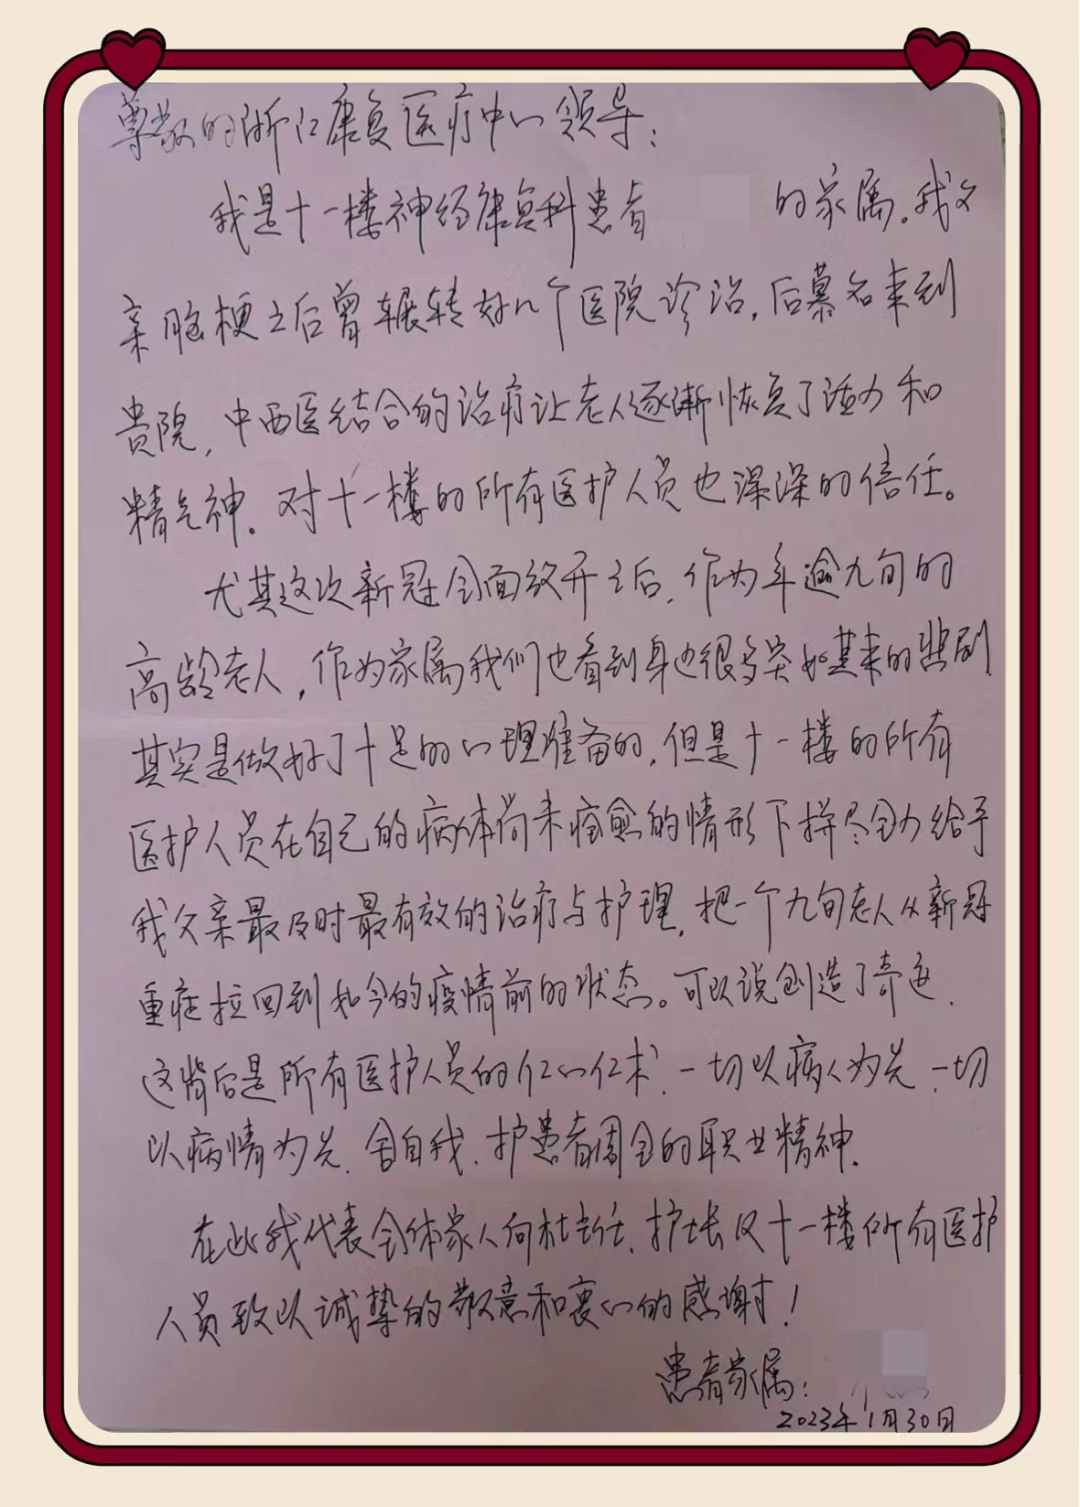 尊敬的浙江康复医疗中心领导：
我是十一楼神经康复科患者 的家属。我父
亲脑梗之后曾辗转好几个医院诊治，后慕名来到
贵院，中西医结合的治疗让老人逐渐恢复了活力和
精气神。对十一楼的所有医护人员也深深的信任。
尤其这次新冠全面放开之后，作为年逾九旬的
高龄老人，作为家属我们也看到身边很多突如其来的悲剧
其实是做好了十足的心理准备的，但是十一楼的所有
医护人员在自己的病体尚未痊愈的情形下拼尽全力给予
我父亲最及时最有效的治疗与护理，把一个九旬老人从新冠
重症拉回到如今的疫情前的状态。可以说创造了奇迹，
这背后是所有医护人员的仁心仁术，一切以病人为先，一切
以病情为先，舍自我，护患者周全的职业精神。
在此我代表全体家人向杜主任，护士长及十一楼所有医护
人员致以诚挚的敬意和衷心的感谢！
患者家属：
2023年1月30日